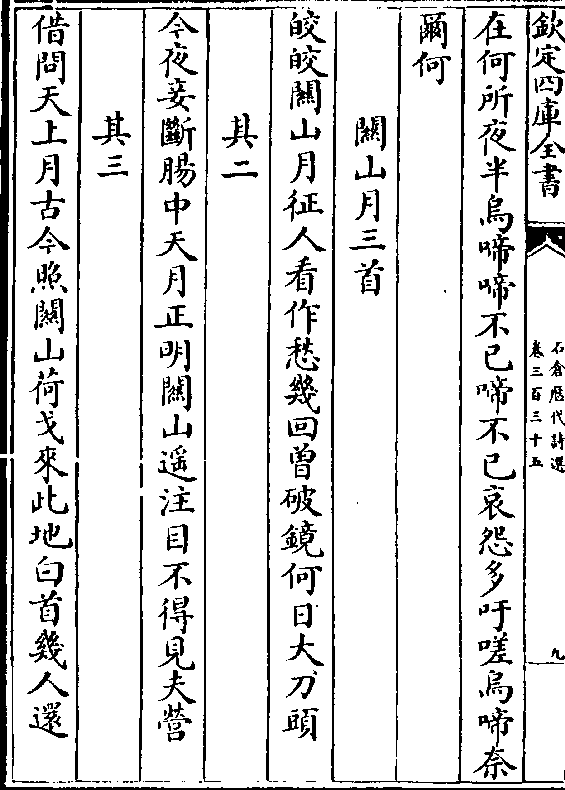 欽定四庫全書
石倉歷代詩選
卷三百三十五
九
在何所夜半烏啼啼不已啼不已哀怨多吁嗟烏啼奈
爾何
關山月三首
皎皎關山月征人看作愁幾回曾破鏡何日大刀頭
其二
今夜妾斷腸中天月正明關山遥注目不得見夫營
其三
借問天上月古今照關山荷戈來此地白首幾人還